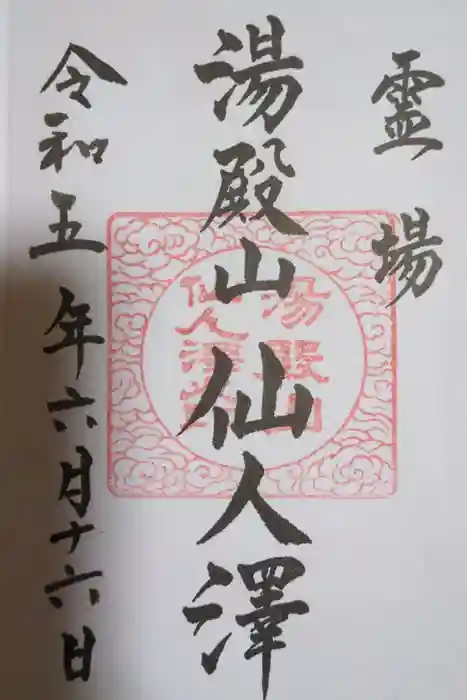 霊場
湯殿山仙人澤
令和五年六月十六日
湯殿山
仙人澤